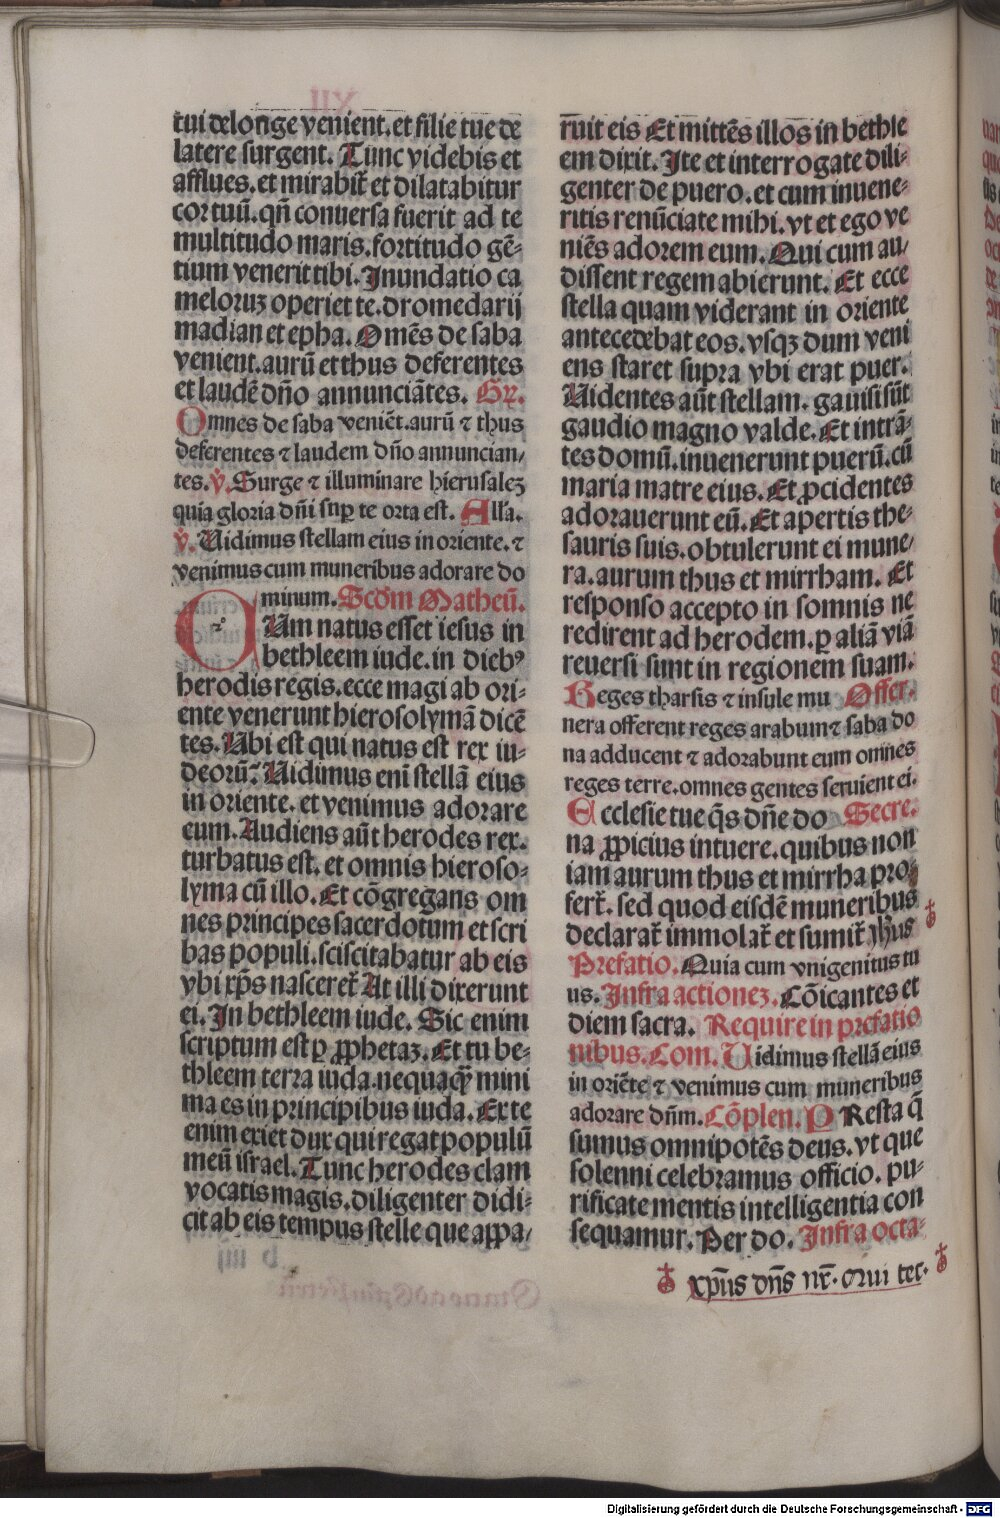 tui delonge venient. et filie tue de
latere surgent. Tunc videbis et
afflues. et mirabit̄ et dilatabitur
cor tuū. qn̄ conuersa fuerit ad te
multitudo maris. fortitudo gē-
tium venerit tibi. Inundatio ca
meloruꝫ operiet te. dromedarij
madian et epha. Omēs de saba
venient. aurū et thus deferentes
et laudē dn̄o annunciātes. Gr̄.
Omnes de saba veniēt. aurū ⁊ thus
deferentes ⁊ laudem dn̄o annuncian/
tes. ℣. Surge ⁊ illuminare hierusaleꝫ
quia gloria dn̄i sup̄ te orta est. Alla.
℣. Uidimus stellam eius in oriente. ⁊
venimus cum muneribus adorare do
minum. Scd̄m Matheū.
CUm natus esset iesus in
bethleem iude. in diebꝰ
herodis regis. ecce magi ab ori-
ente venerunt hierosolymā dicē
tes. Ubi est qui natus est rex iu-
deorū? Uidimus eni stellā eius
in oriente. et venimus adorare
eum. Audiens aūt herodes rex.
turbatus est. et omnis hieroso-
lyma cū illo. Et cōgregans om
nes principes sacerdotum et scri
bas populi. sciscitabatur ab eis
vbi xp̄s nasceret̄ At illi dixerunt
ei. In bethleem iude. Sic enim
scriptum est ꝑ ꝓphetaꝫ. Et tu be-
thleem terra iuda. nequaqꝫ mini
ma es in principibus iuda. Ex te
enim exiet dux qui regat populū
meū israel. Tunc herodes clam
vocatis magis. diligenter didi-
cit ab eis tempus stelle que appa/
ruit eis Et mittēs illos in bethle
em dixit. Ite et interrogate dili-
genter de puero. et cum inuene-
ritis renūciate mihi. vt et ego ve
niēs adorem eum. Qui cum au/
dissent regem abierunt. Et ecce
stella quam viderant in oriente
antecedebat eos. vsqꝫ dum veni
ens staret supra vbi erat puer.
Uidentes aūt stellam. gauisi sūt
gaudio magno valde. Et intrā-
tes domū. inuenerunt puerū. cū
maria matre eius. Et ꝓcidentes
adorauerunt eū. Et apertis the-
sauris suis. obtulerunt ei mune/
ra. aurum thus et mirrham. Et
responso accepto in somnis ne
redirent ad herodem. ꝑ aliā viā
reuersi sunt in regionem suam.
Reges tharsis ⁊ insule mu Offer.
nera offerent reges arabum ⁊ saba do
na adducent ⁊ adorabunt eum omnes
reges terre. omnes gentes seruient ei.
Ecclesie tue q̄s dn̄e do Secre.
na ꝓpicius intuere. quibus non
iam aurum thus et mirrha pro-
fert̄. sed quod eisdē muneribus
declarat̄ immolat̄ et sumit̄ Jhūs
Prefatio. Quia cum vnigenitus tu
us. Infra actioneꝫ. Cōicantes et
diem sacra. Require in prefatio
nibus. Com. Uidimus stellā eius
in oriēte ⁊ venimus cum muneribus
adorare dn̄m. Cōplen. PResta q̄
sumus omnipotēs deus. vt que
solenni celebramus officio. pu-
rificate mentis intelligentia con
sequamur. Per do. Infra octa-
xp̄us dn̄s nr̄. Qui tec.
Digitalisierung gefördert durch die Deutsche Forschungsgemeinschaft - DFG